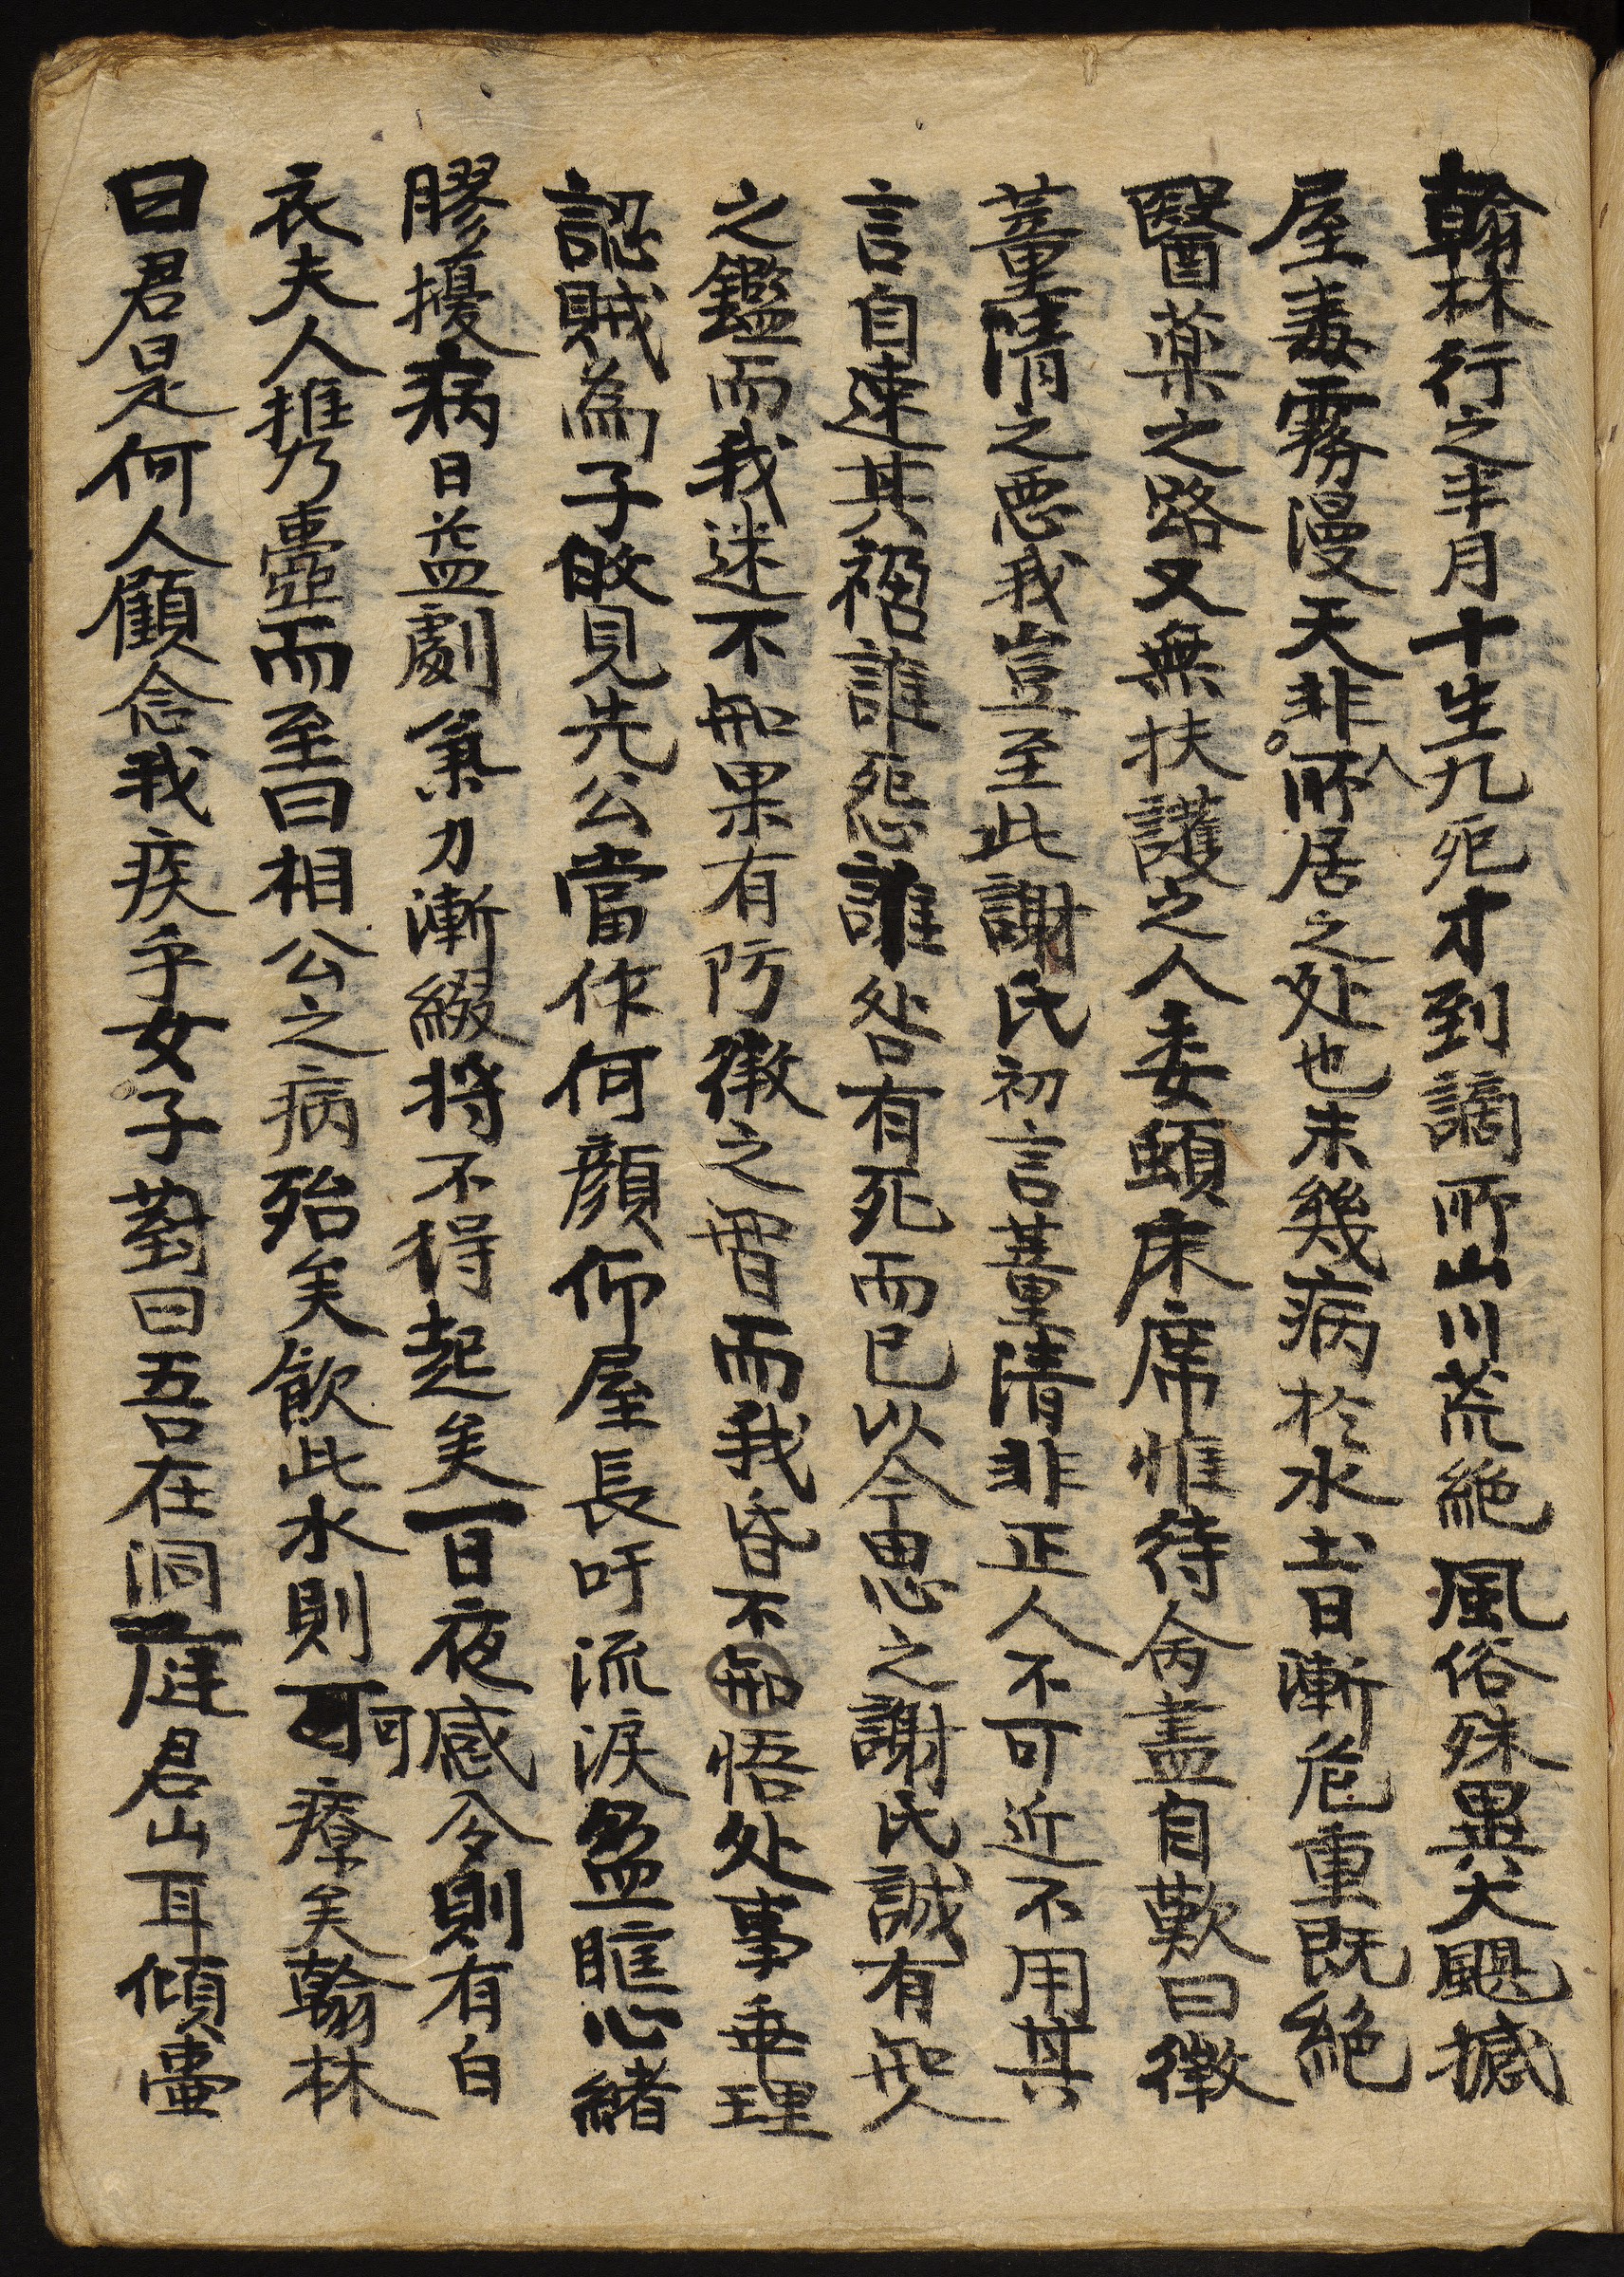 翰林行之半月十生九死才到謫所山川荒絶風俗殊異大颶撼
屋毒霧漫天非人所居之处也未幾病於水土昔日漸危重既絶
醫藥之路又無扶護之人委頓床席惟待命盡自歎曰微
董清之惡我豈至此謝氏初言董清非正人不可近不用其
言自速其禍誰怨誰咎有死而已以今思之謝氏誠有知人
之鑑而我迷不知果有防微之智而我昏不知悟处事乖理
認賊為子故見先公當作何顔仰屋長吁流淚盈眶心緒
膠擾病日益劇氣力漸綴将不得起矣一日夜感今則有白
衣夫人携壺而至曰相公之病殆矣飲此水則可可療矣翰林
曰君是何人顧念我疾乎女子對曰吾在洞庭君山耳傾壺